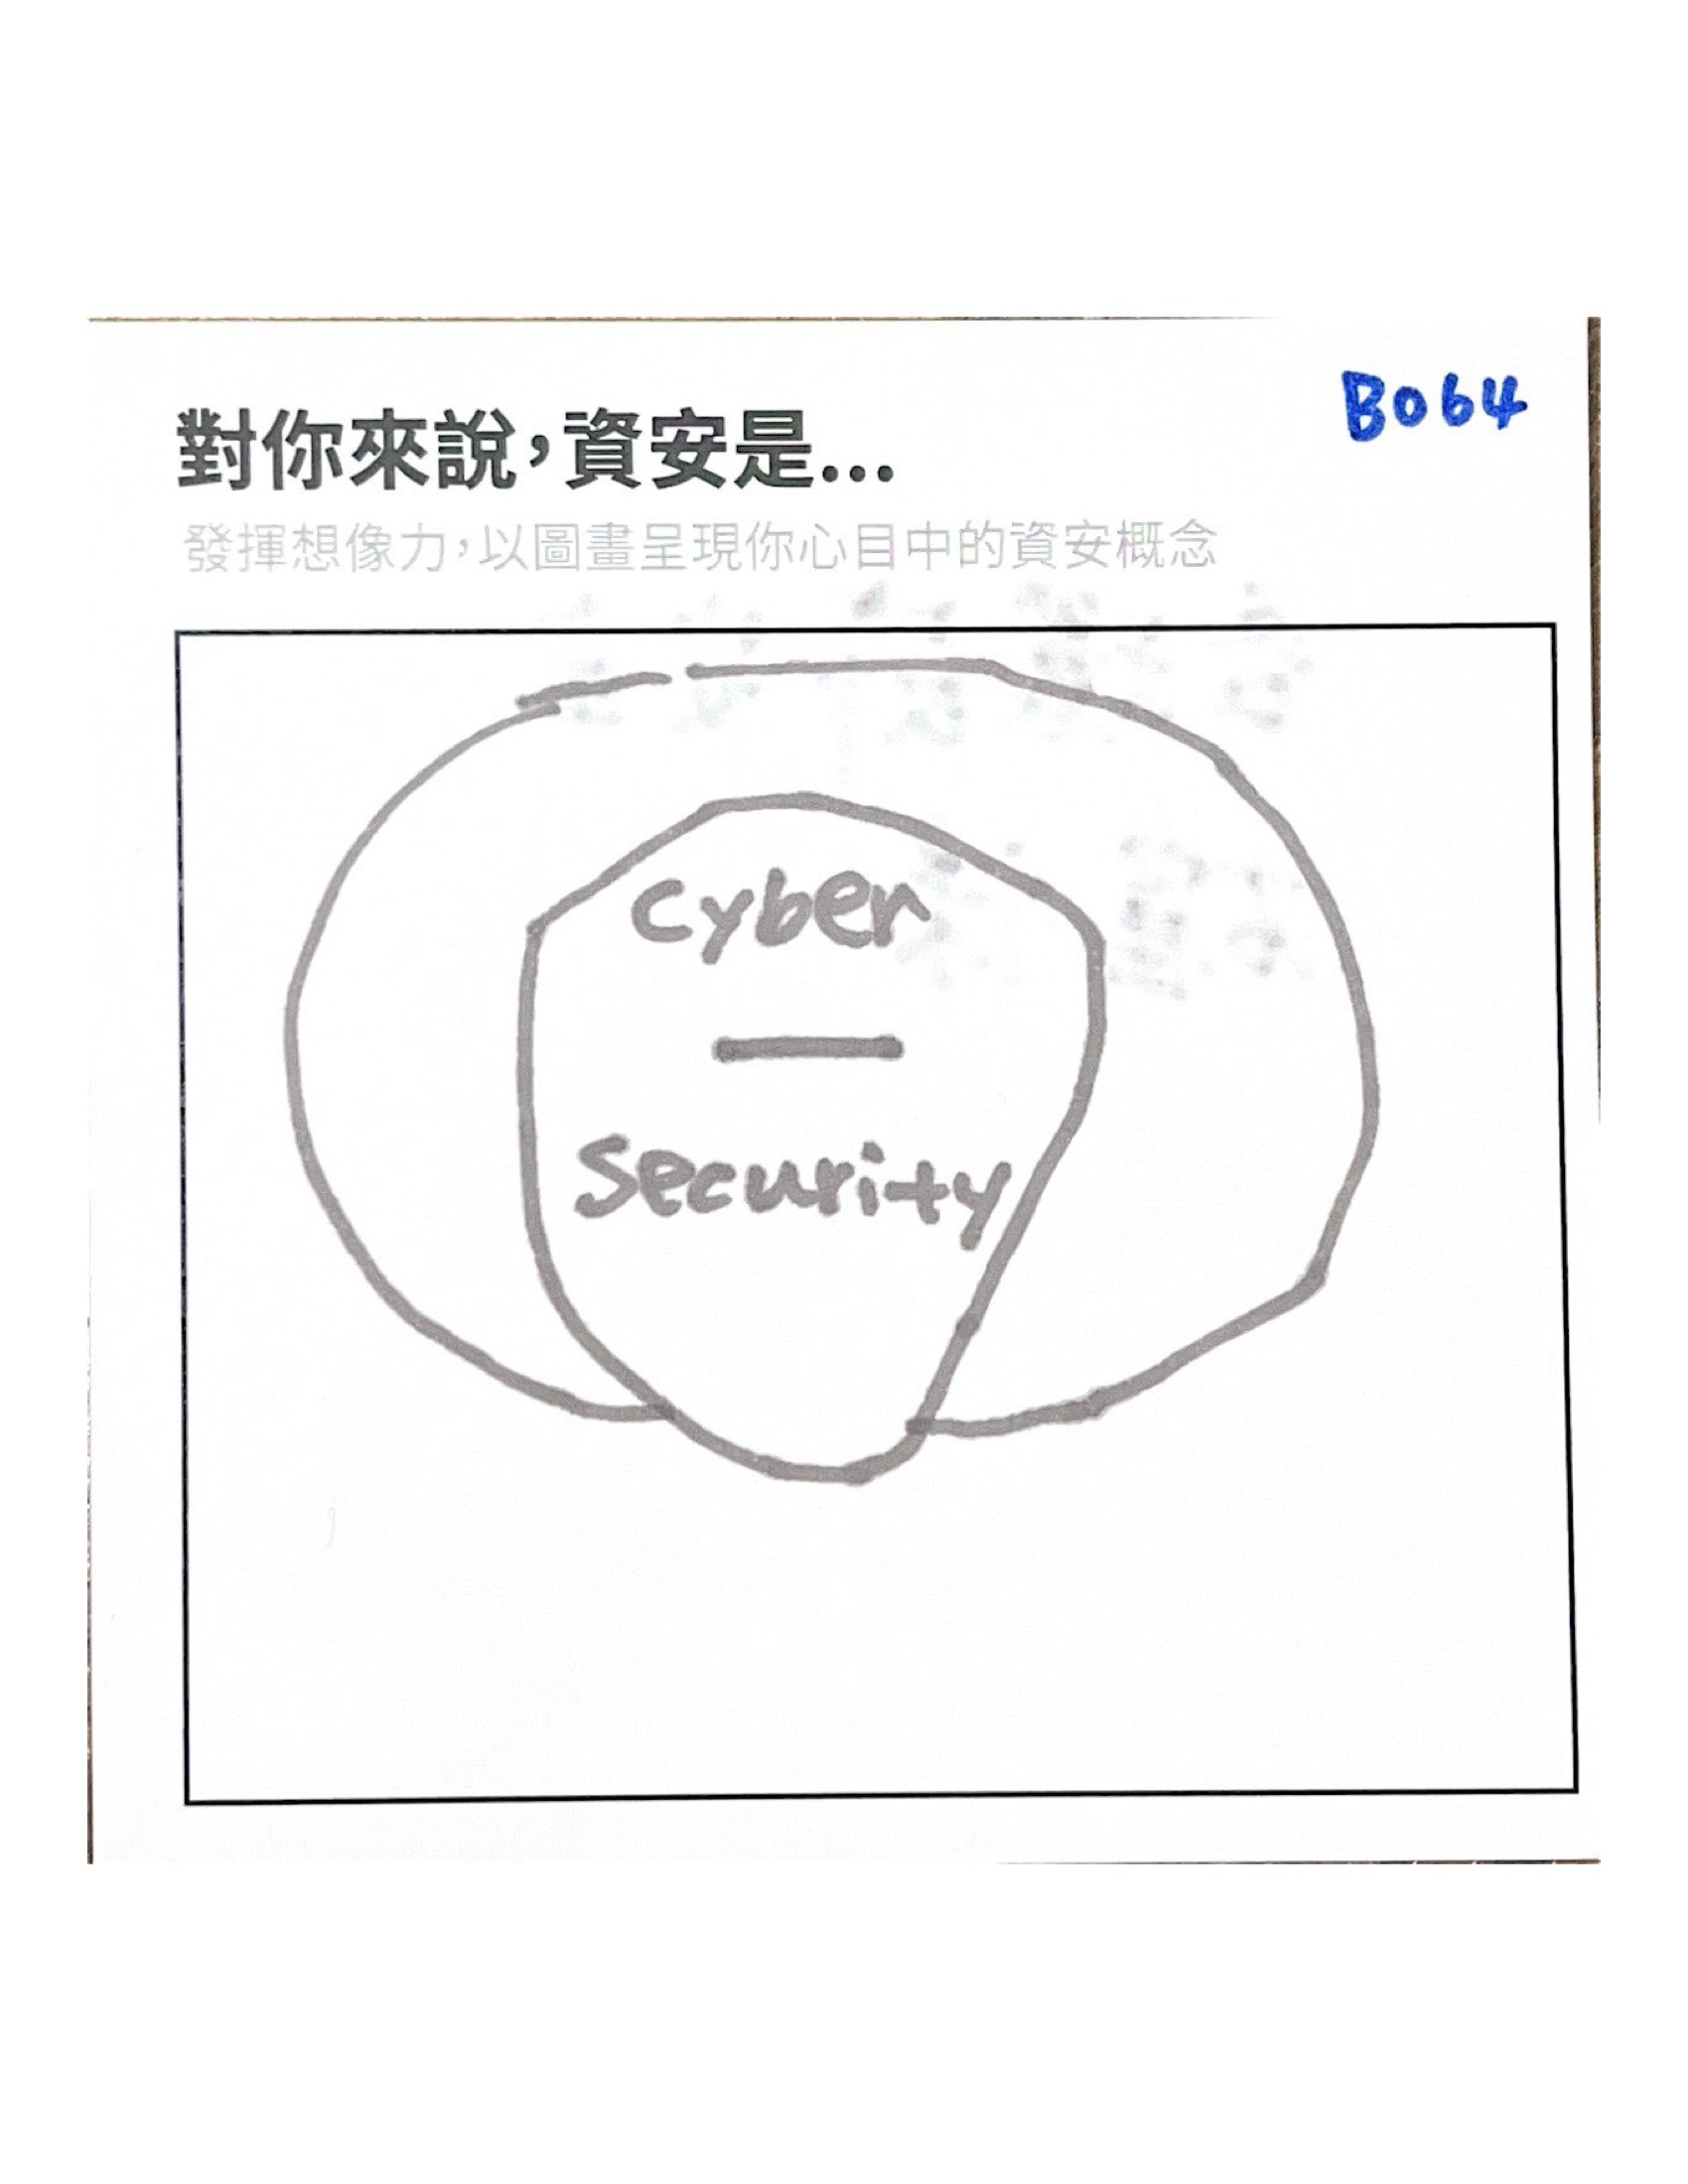 B064
對你來說,資安是...
發揮想像力,以圖畫呈現你心目中的資安概念
cyber
—
Security